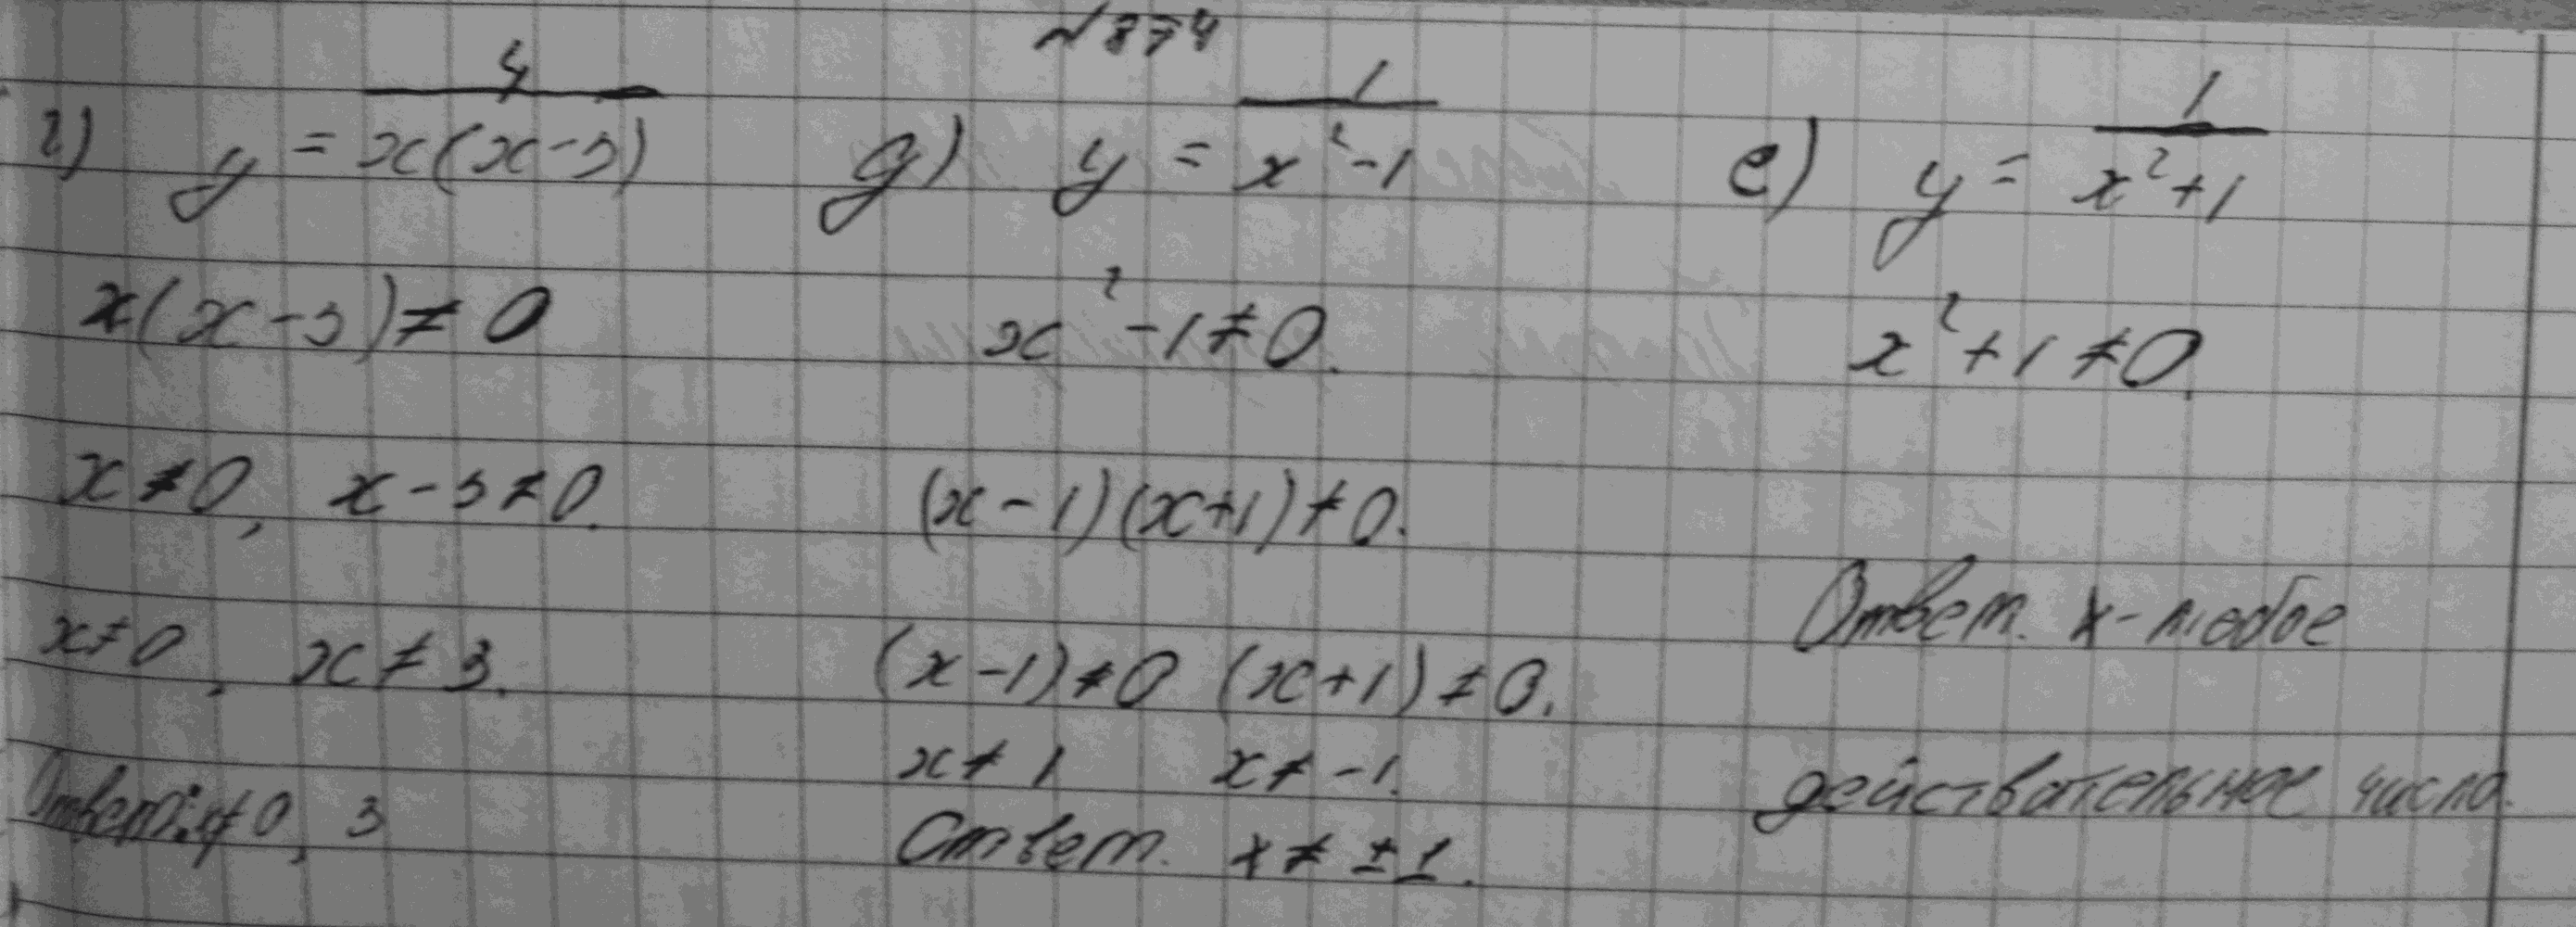 №874
г) y = 4/x(x-3)
x(x-3)≠0
x≠0, x-3≠0.
x≠0, x≠3.
Ответ: x≠0, 3
д) y = 1/x²-1
x²-1≠0.
(x-1)(x+1)≠0.
(x-1)≠0 (x+1)≠0.
x≠1 x≠-1.
Ответ. x≠±1.
е) y = 1/x²+1
x²+1≠0.
Ответ. x-любое
действательное число.